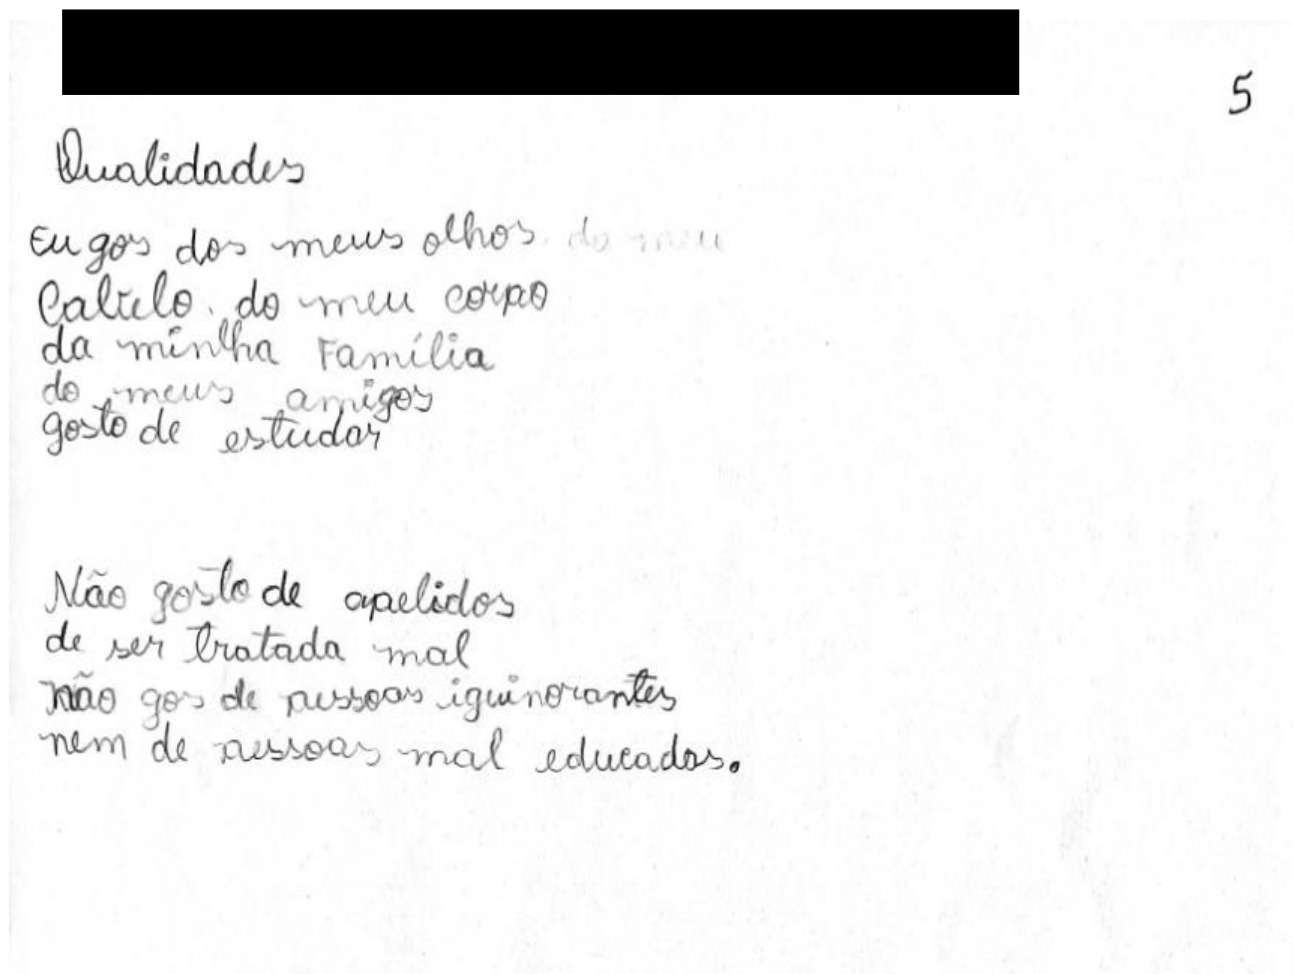 5
Qualidades
Eu gos dos meus olhos. do meu
Cabelo. do meu corpo
da minha Família
do meus amigos
gosto de estudar
Não gosto de apelidos
de ser tratada mal
não gos de pessoas iguinorantes
nem de pessoas mal educadas.